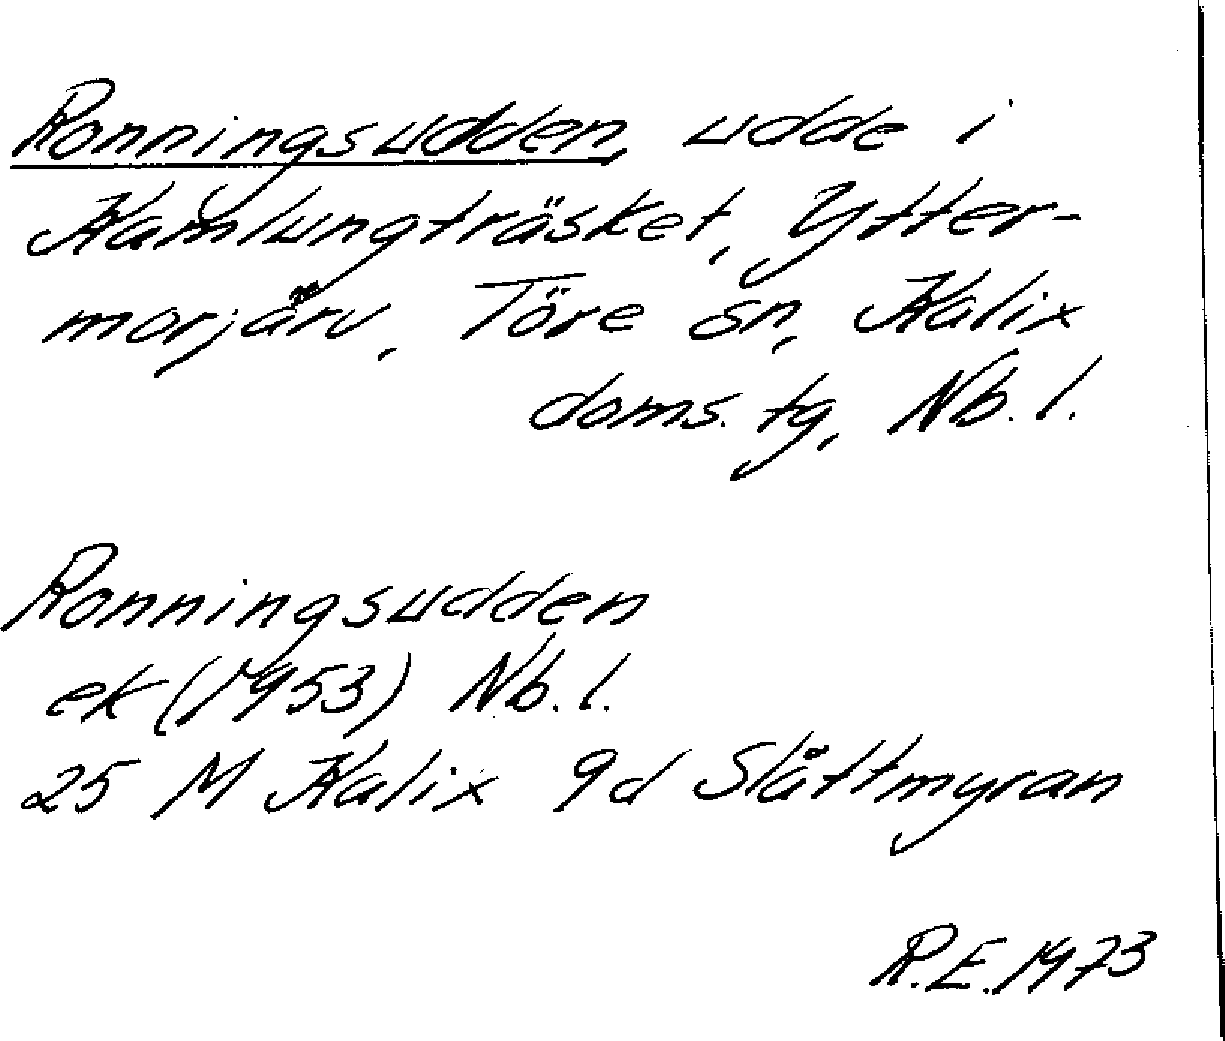 Ronningsudden, udde i
Kamlungträsket, Ytter-
morjärv, Töre sn, Kalix
doms. tg, Nb. l.
Ronningsudden
ek (1953) Nb. l.
25 M Kalix 9d Slåttmyran
R.E. 1973